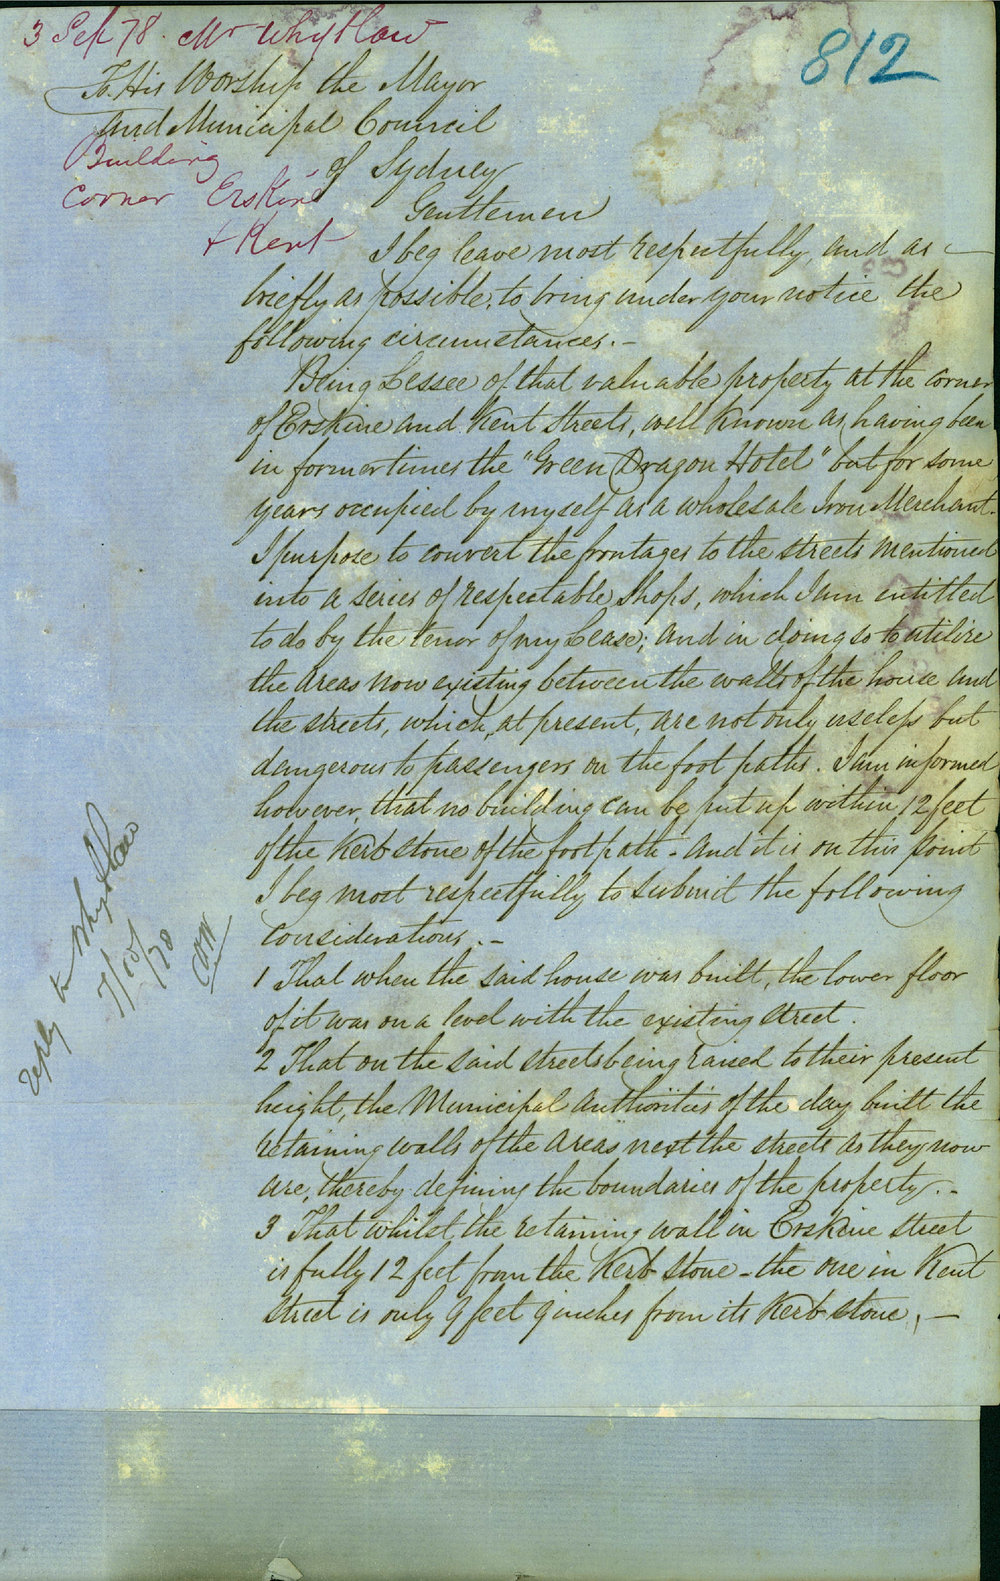 3 Sep 78. Mr Whytlaw
812
To His Worship the Mayor
and Municipal Council
of Sydney
Building
corner Erskine
+ Kent
Gentlemen
I beg leave most respectfully, and as
briefly as possible, to bring under your notice the
following circumstances. -
Being Lessee of that valuable property at the corner
of Erskine and Kent Streets, well known as having been
in former times the "Green Dragon Hotel" but for some
years occupied by myself as a wholesale Iron Merchant.
I purpose to convert the frontages to the streets mentioned
into a series of respectable shops, which I am entitled
to do by the tenor of my Lease; and in doing so to utilize
the areas now existing between the walls of the house and
the streets, which, at present, are not only useless but
dangerous to passengers on the foot paths. I am informed
however, that no building can be put up within 12 feet
of the Kerb stone of the footpath - and it is on this point
I beg most respectfully to submit the following
considerations. -
1 That when the said house was built, the lower floor
of it was on a level with the existing street.
2 That on the said streets being raised to their present
height, the Municipal authorities of the day built the
retaining walls of the areas next the streets as they now
are, thereby defining the boundaries of the property. -
3 That whilst the retaining wall in Erskine street
is fully 12 feet from the Kerb stone - the one in Kent
street is only 9 feet 9 inches from its Kerb stone, -
reply to Whytlaw
7/10/78